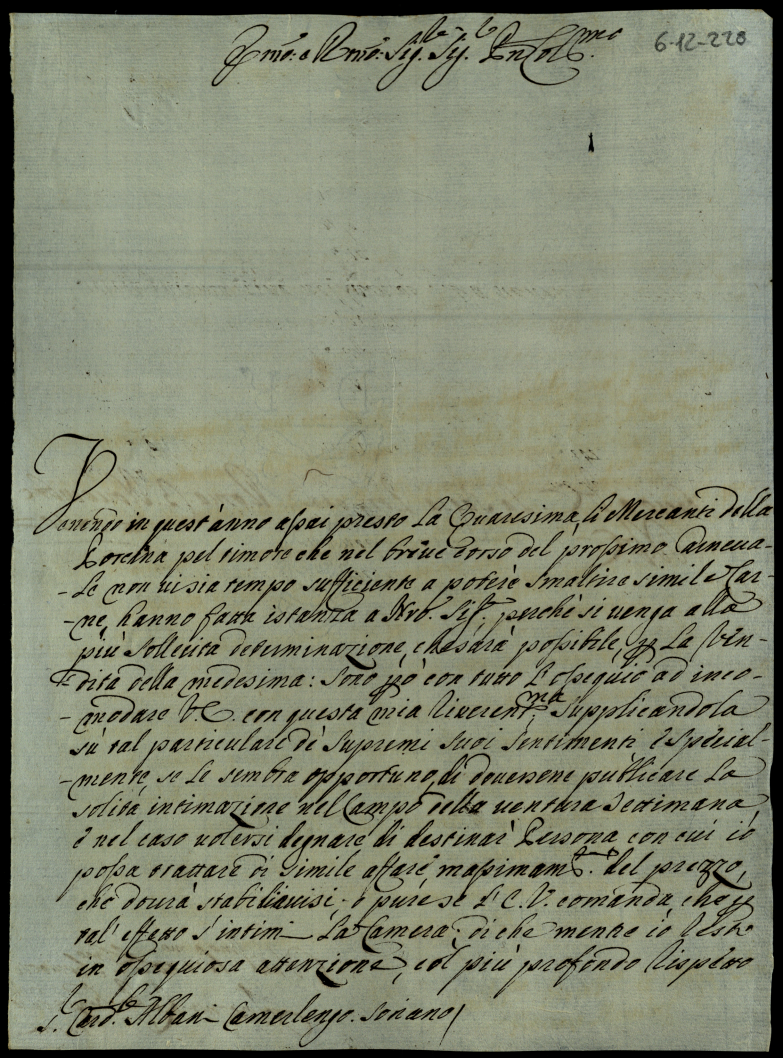 Emo: e Rmo: Sig.re Sig.r Pn Col.mo
6-12-228
Venendo in quest'anno assai presto La Quaresima, li Mercanti della
Porcina pel timore che nel breve corso del prossimo Carneva-
-le non vi sia tempo sufficiente a potere smaltire simile Car-
-ne, hanno fatta istanza a Nro. Sig.re perchè si venga alla
più sollecita determinazione, che sarà possibile, p La Ven-
dita della medesima: Sono pò con tutto L'ossequio ad inco-
-modare V.E. con questa mia riverent.ma supplicandola
sù tal particulare de' supremi suoi sentimenti e special-
-mente, se Le sembra opportuno, di doversene publicare La
solita intimazione nel Campo della ventura settimana,
e nel caso volersi degnare di destinar Persona con cui io
possa trattare di simile affare, massimam.te del prezzo,
che dovrà stabilirvisi, o pure se L'E.V. comanda che p
tal' effetto s'intimi La Camera; di che mentre io resto
in ossequiosa attenzione, col più profondo rispetto
S.r Card.le Albani Camerlengo. Soriano